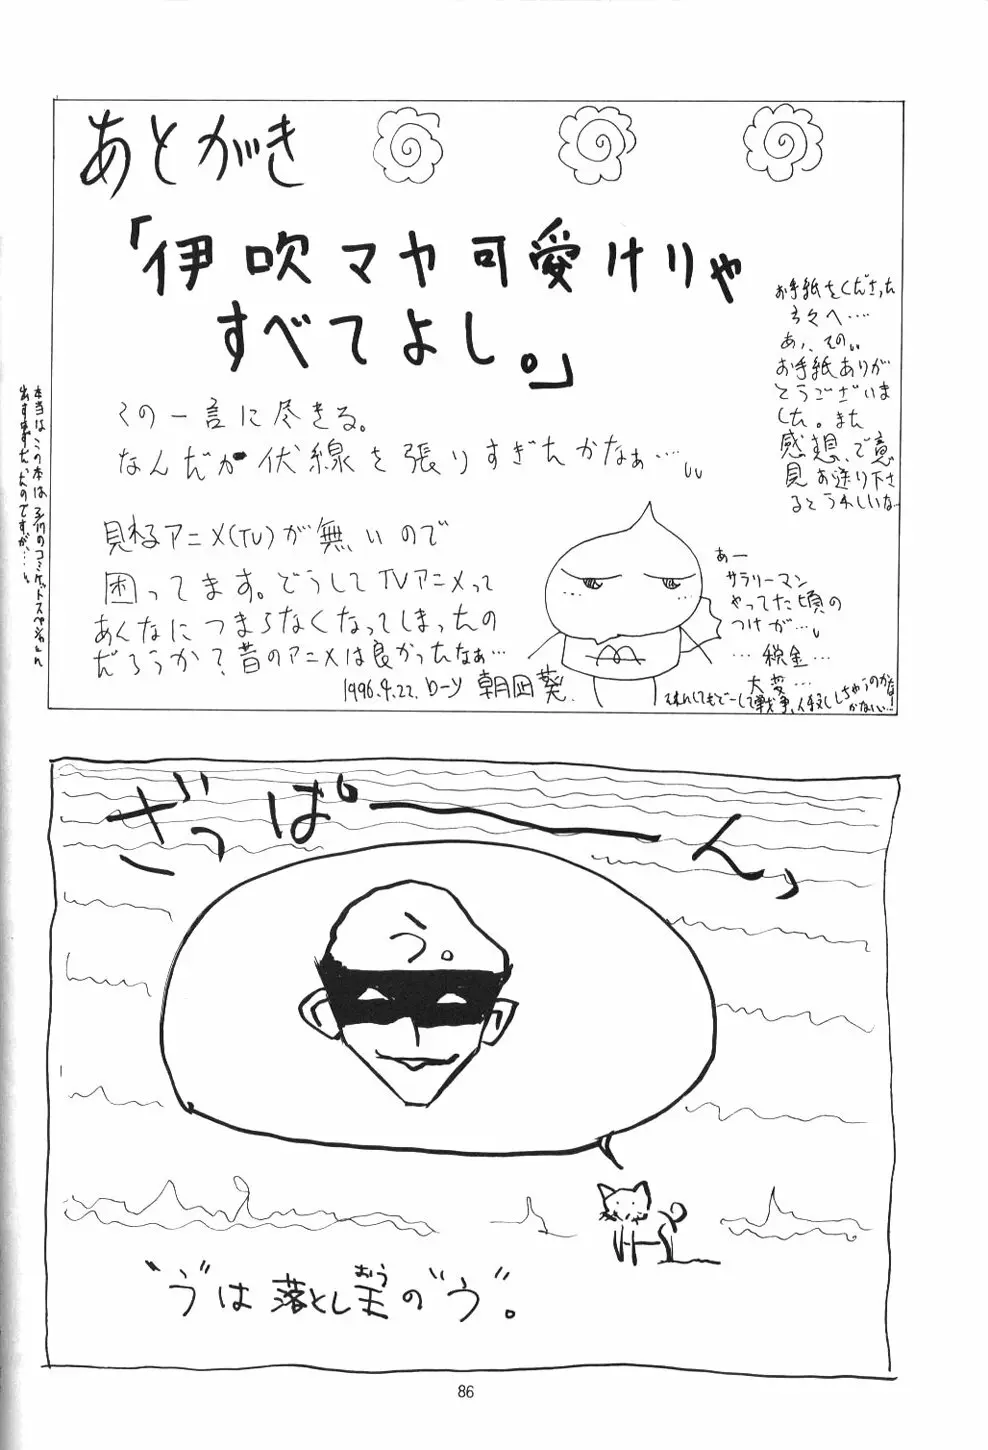 あとがき
「伊吹マヤ可愛けりゃ
すべてよし。」
この一言に尽きる。
なんだか伏線を張りすぎたかなぁ…
お手紙をくださった
方々へ…
あ、その、
お手紙ありが
とうございま
した。また
感想、ご意
見お送り下さ
るとうれしいな
見れるアニメ(TV)が無いので
困ってます。どうしてTVアニメって
あんなにつまらなくなってしまったの
だろうか？昔のアニメは良かったなぁ…
1996.4.22. ローソ 朝凪葵.
あー
サラリーマン
やってた頃の
つけが…
…税金…
大変…
それにしてもどーして戦争
本当はこの本は3/17のコミケットスペシャルに
出すはずだったのですが…
ざっぱーーん
う。
“う”は落とし王の“う”。
おう
86